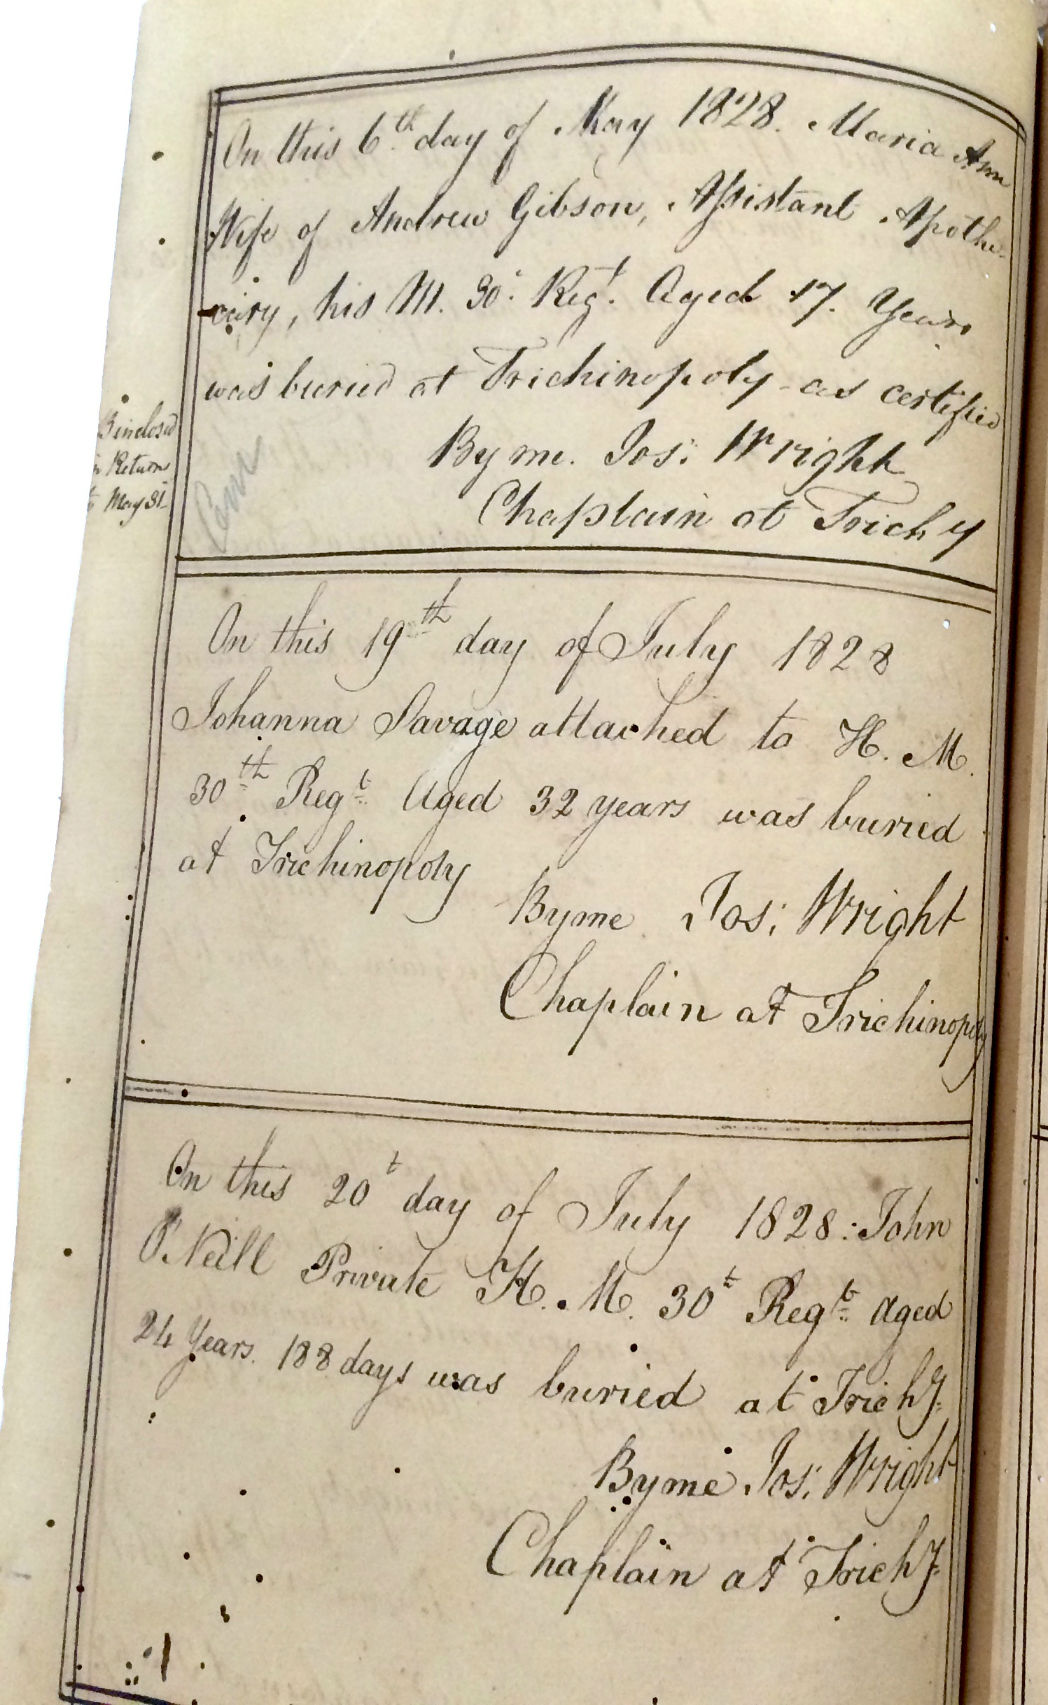 On this 6th day of May 1828. Maria Ann
Wife of Andrew Gibson, Assistant Apothe-
-cary, his M. 30t Regt. Aged 17. Years
was buried at Trichinopoly as certified
By me. Jos: Wright
Chaplain at Trichy
enclosed
Return
May 31
On this 19th day of July 1828
Johanna Savage attached to H. M.
30th Regt Aged 32 years was buried
at Trichinopoly
By me Jos: Wright
Chaplain at Trichinopoly
On this 20t day of July 1828: John
O'Neill Private H. M. 30t Regt aged
24 Years. 188 days was buried at Trichy.
By me Jos: Wright
Chaplain at Trichy.